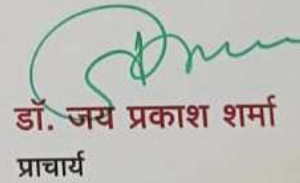 डॉ. जय प्रकाश शर्मा
प्राचार्य